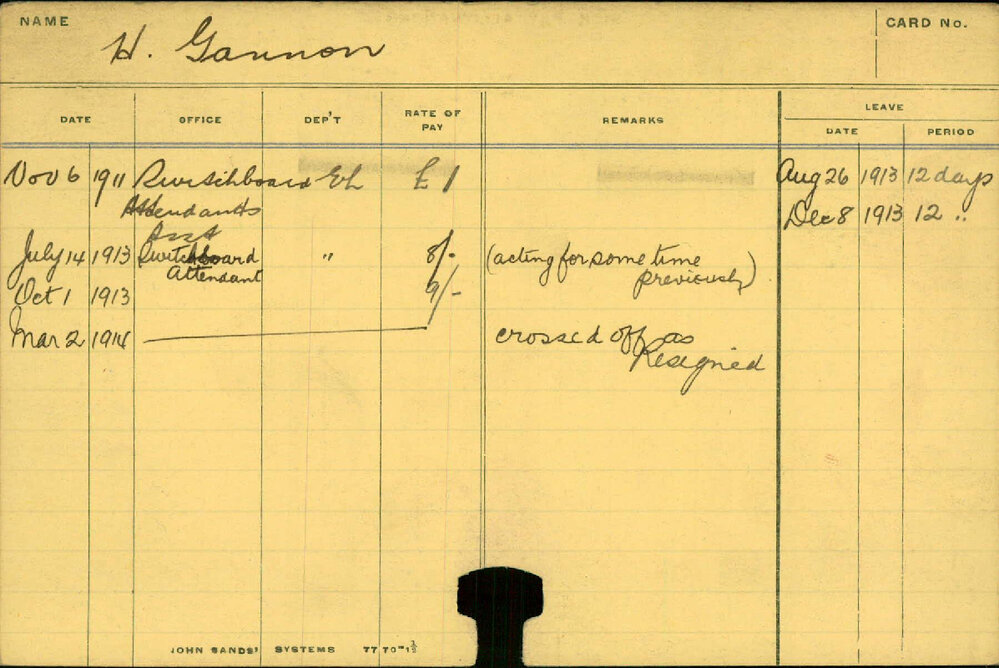 NAME
H. Gannon
CARD No.
DATE OFFICE DEP'T RATE OF PAY REMARKS LEAVE
DATE PERIOD
Nov 6 1911 Switchboard EL £1 Aug 26 1913 12 days
Attendants Dec 8 1913 12 "
Asst
July 14 1913 Switchboard " 8/- (acting for some time
Attendant previously)
Oct 1 1913 9/-
Mar 2 1914 crossed off as
Resigned
JOHN SANDS' SYSTEMS 77 70-1½